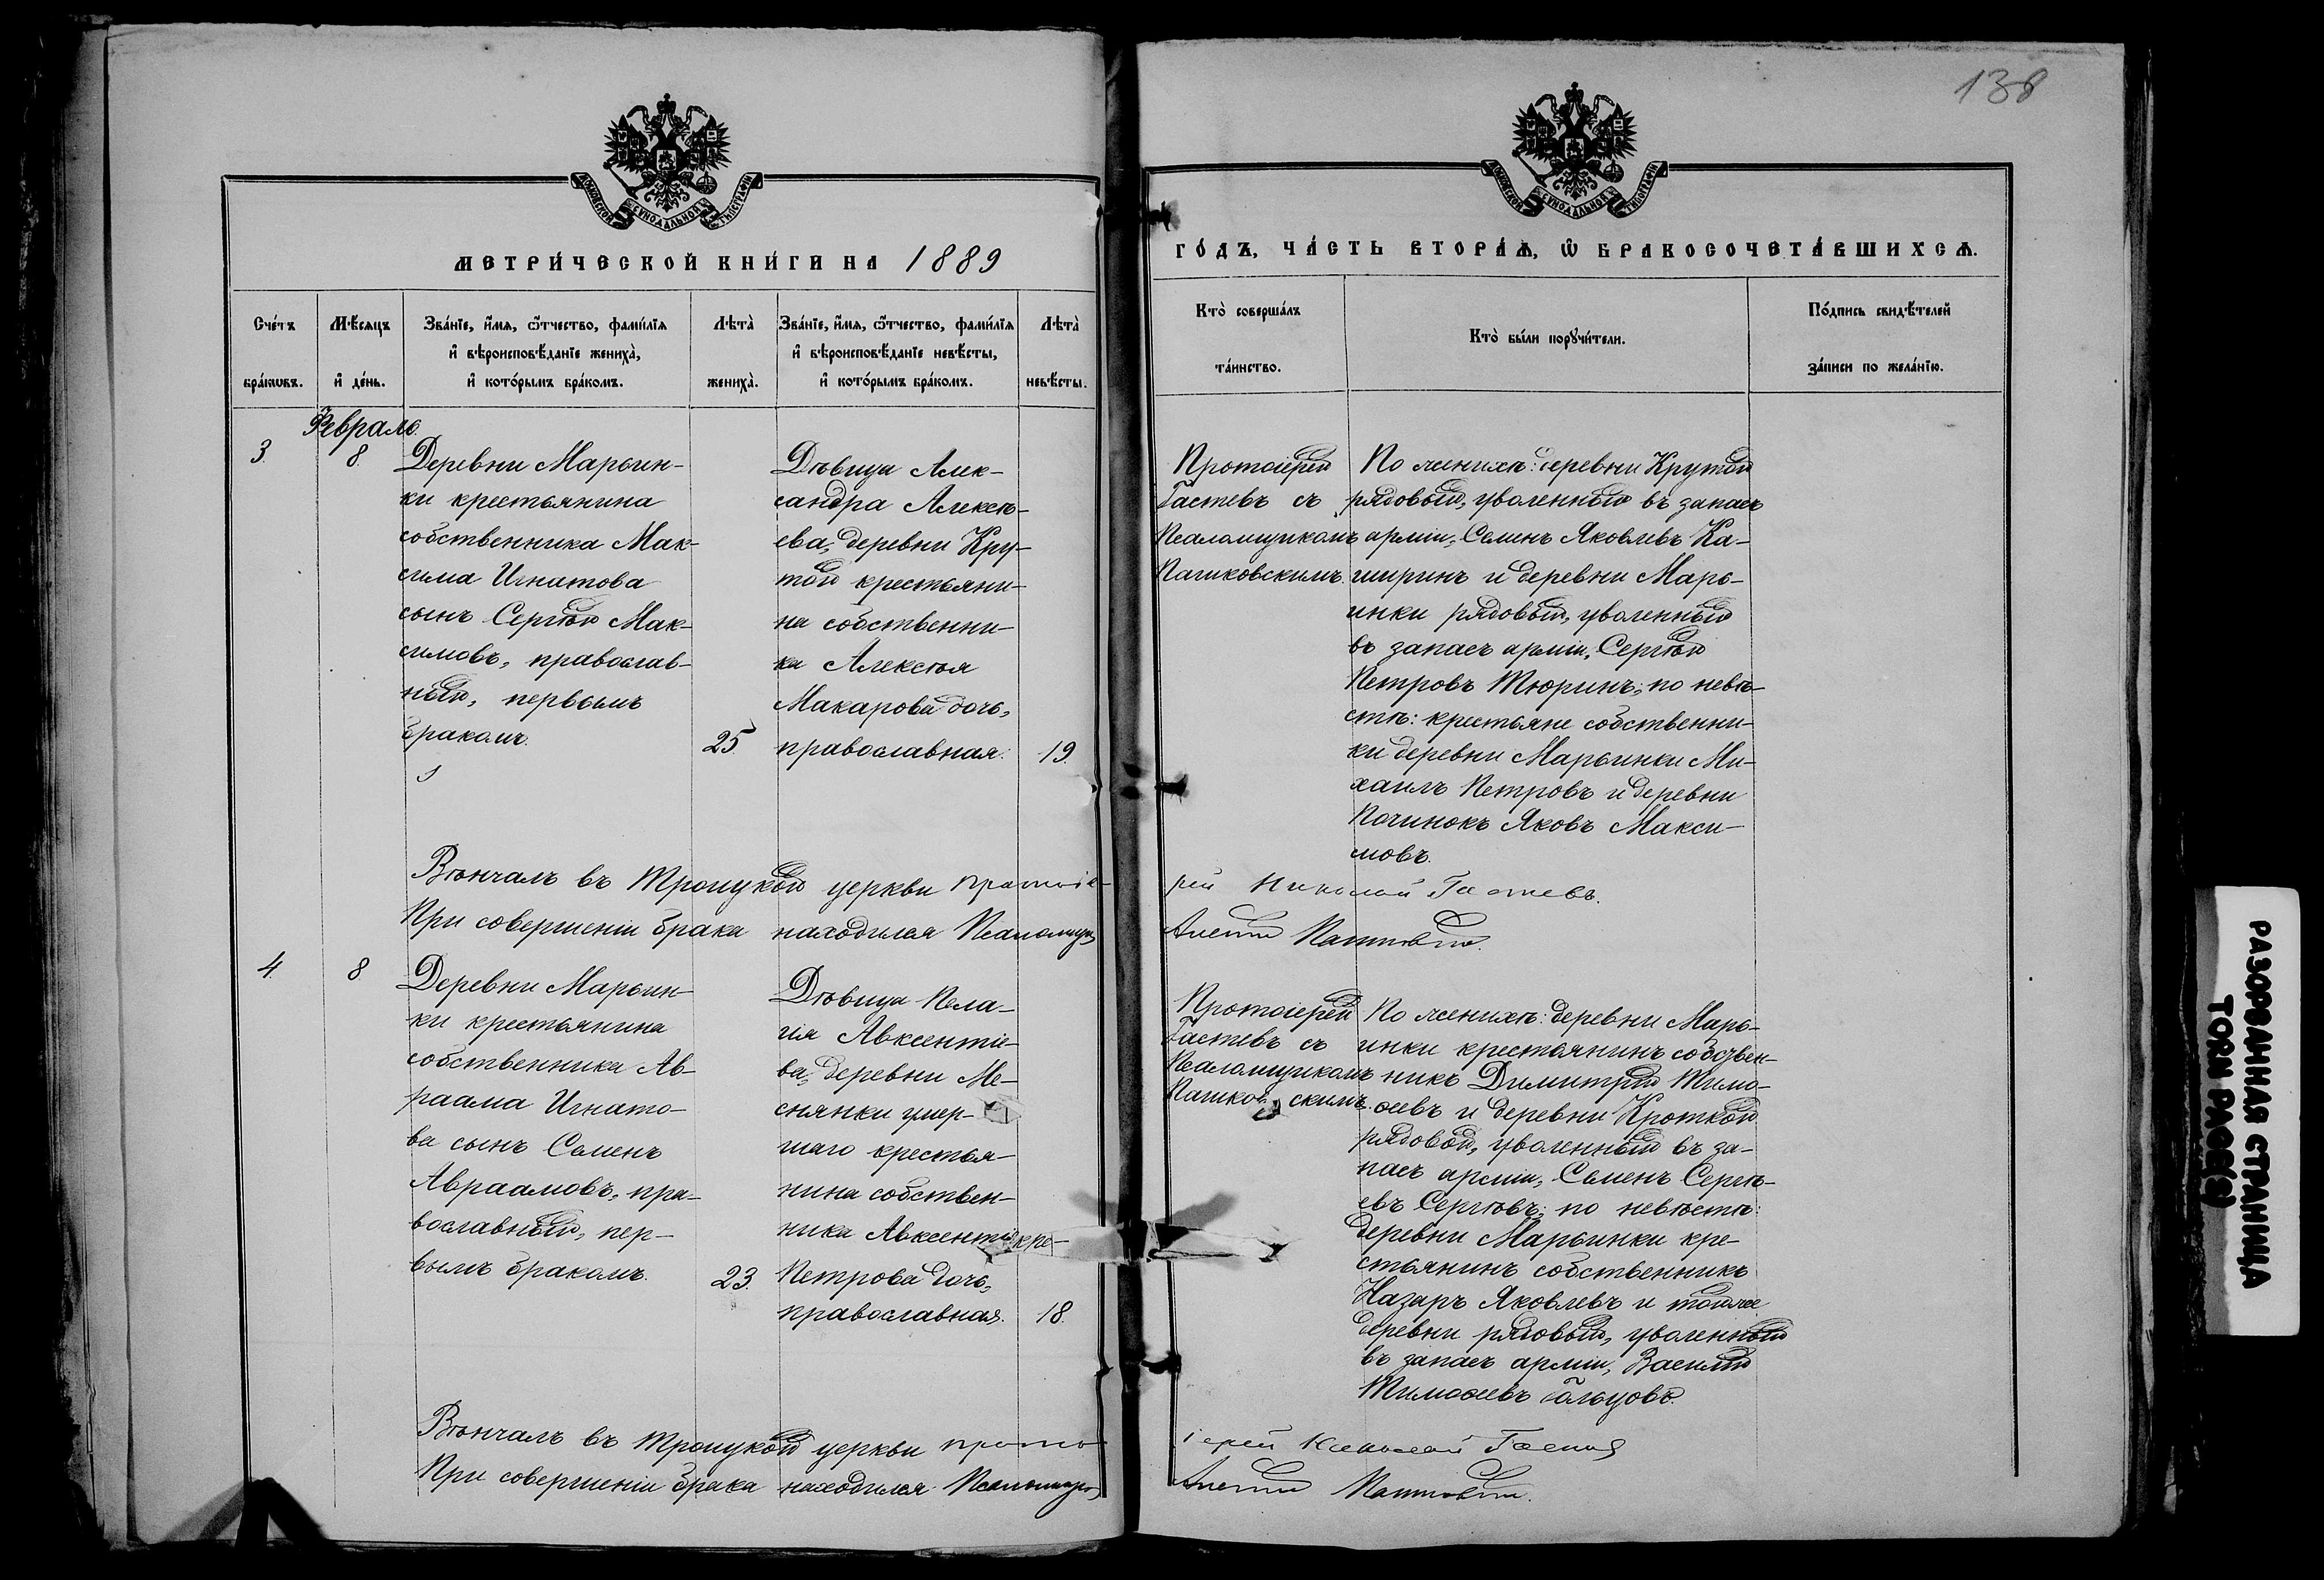 138
МЕТРИ́ЧЕСКОЙ КНИ́ГИ НА 1889
ГО́ДЪ, ЧА́СТЬ ВТОРА́Ѧ, Ѽ БРАКОСОЧЕТА́ВШИХСѦ.
Сче́тъ бра́кωвъ.
Мѣ́сѧцъ и҆ де́нь.
Зва́нїе, и҆́мѧ, ѻ҆́тчество, фами́лїѧ
и҆ вѣроисповѣ́данїе жениха̀,
и҆ кото́рымъ бра́комъ.
Лѣта̀ жениха̀.
Зва́нїе, и҆́мѧ, ѻ҆́тчество, фами́лїѧ
и҆ вѣроисповѣ́данїе невѣ́сты,
и҆ кото́рымъ бра́комъ.
Лѣта̀ невѣ́сты.
Кто̀ соверша́лъ
та́инство.
Кто̀ бы́ли порꙋчи́тели.
По́дпись свидѣ́телей
за́писи по жела́нїю.
Февраль.
3.
8.
Деревни Марьин-
ки крестьянина
собственника Мак-
сима Игнатова
сынъ Сергѣй Мак-
симовъ, православ-
ный, первымъ
бракомъ.
25.
Дѣвица Алек-
сандра Алексѣ-
ева, деревни Кру-
той крестьяни-
на собственни-
ка Алексѣя
Макарова дочь,
православная.
19.
Протоіерей
Гастевъ съ
Псаломщикомъ
Пашковскимъ.
По женихѣ: деревни Крутой
рядовый, уволенный въ запасъ
арміи, Семенъ Яковлевъ Ка-
ширинъ и деревни Марь-
инки рядовый, уволенный
въ запасъ арміи, Сергѣй
Петровъ Тюринъ; по невѣ-
стѣ: крестьяне собственни-
ки деревни Марьинки Ми-
хаилъ Петровъ и деревни
Починокъ Яковъ Макси-
мовъ.
Вѣнчалъ въ Троицкой церкви протоіе-
рей Николай Гастевъ.
При совершеніи брака находился Псаломщикъ
Пашковскій.
4.
8.
Деревни Марьин-
ки крестьянина
собственника Ав-
раама Игнато-
ва сынъ Семенъ
Авраамовъ, пра-
вославный, пер-
вымъ бракомъ.
23.
Дѣвица Пела-
гія Авксентіе-
ва, деревни Ме-
снянки умер-
шаго крестья-
нина собствен-
ника Авксентія
Петрова дочь,
православная.
18.
Протоіерей
Гастевъ съ
Псаломщикомъ
Пашковскимъ.
По женихѣ: деревни Марь-
инки крестьянинъ собствен-
никъ Димитрій Тимо-
ѳеевъ и деревни Кроткой
рядовой, уволенный въ за-
пасъ арміи, Семенъ Сергѣ-
евъ Сергѣевъ; по невѣстѣ:
деревни Марьинки кре-
стьянинъ собственникъ
Назаръ Яковлевъ и тойже
деревни рядовый, уволенный
въ запасъ арміи, Василій
Тимоѳеевъ
Вѣнчалъ въ Троицкой церкви прото-
іерей Николай Гастевъ
При совершеніи брака находился Псаломщикъ
Пашковскій.
РАЗОРВАННАЯ СТРАНИЦА
TORN PAGE(S)